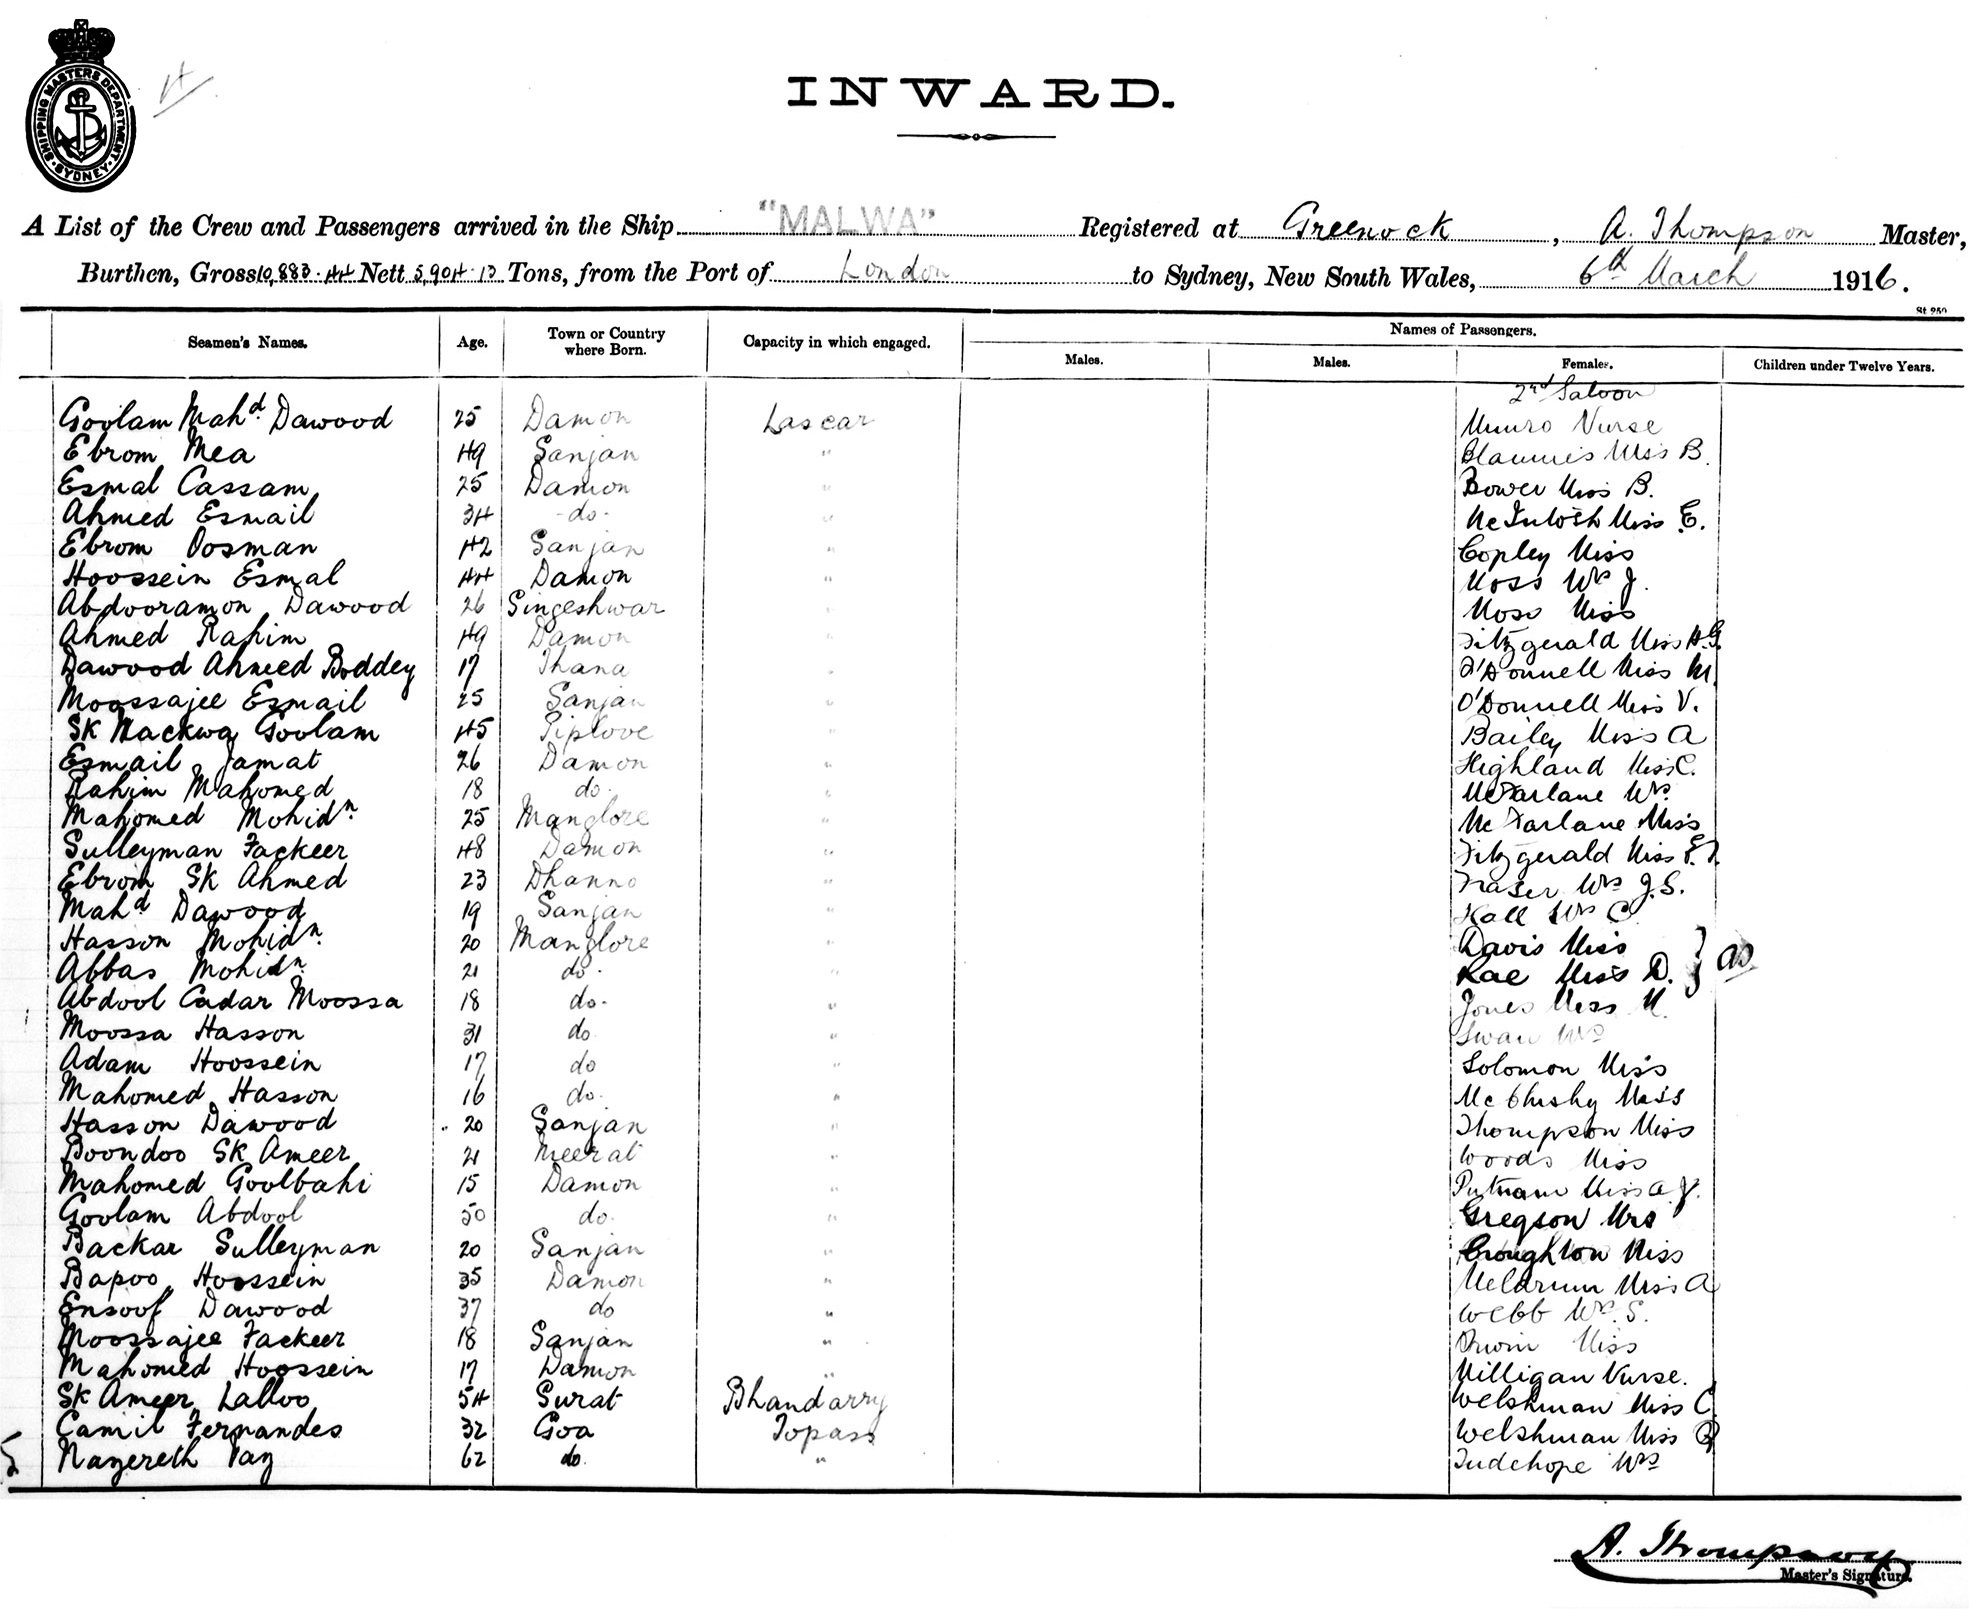 SHIPPING MASTERS DEPARTMENT
SYDNEY
INWARD.
A List of the Crew and Passengers arrived in the Ship "MALWA" Registered at Greenock, A. Thompson Master,
Burthen, Gross 10,883.44 Nett 5,904.13 Tons, from the Port of London to Sydney, New South Wales, 6th March 1916.
St 950
Seamen's Names. Age. Town or Country where Born. Capacity in which engaged. Names of Passengers.
Males. Males. Females. Children under Twelve Years.
2nd Saloon
Goolam Mahd. Dawood 25 Damon Lascar Munro Nurse
Ebrom Mea 49 Sanjan " Miss B.
Esmal Cassam 25 Damon " Bower Miss B.
Ahmed Esmail 34 -do- " McIntosh Miss E.
Ebrom Oosman 42 Sanjan " Copley Miss
Hoossein Esmal 44 Damon " Moss Mrs J.
Abdooramon Dawood 26 Singeshwar " Moss Miss
Ahmed Rahim 49 Damon " Fitzgerald Miss H.G.
Dawood Ahmed Boddey 17 Thana " O'Donnell Miss M.
Moossajee Esmail 25 Sanjan " O'Donnell Miss V.
SK Nackwa Goolam 45 Piplove " Bailey Miss A
Esmail Jamat 26 Damon " Highland Miss C.
Rahim Mahomed 18 do. " McFarlane Mrs
Mahomed Mohidn. 25 Manglore " McFarlane Miss
Sulleyman Fackeer 48 Damon " Fitzgerald Miss
Ebrom SK Ahmed 23 Dhanno " Fraser Mrs J.S.
Mahd Dawood 19 Sanjan " Hall Mrs C
Hasson Mohidn. 20 Manglore " Davis Miss
Abbas Mohidn. 21 do. " Rae Miss D.
Abdool Cadar Moossa 18 do. " Jones Miss M.
Moossa Hasson 31 do " Swan Mrs
Adam Hoossein 17 do " Solomon Miss
Mahomed Hasson 16 do. " Miss
Hasson Dawood 20 Sanjan " Thompson Miss
Boondoo SK Ameer 21 Meerat " Woods Miss
Mahomed Goolbahi 15 Damon " Putnam Miss A.J.
Goolam Abdool 50 do. " Gregson Mrs
Backar Sulleyman 20 Sanjan " Croughton Miss
Bapoo Hoossein 35 Damon " Meldrum Miss A
Ensoof Dawood 37 do " Webb Mrs. S.
Moossajee Fackeer 18 Sanjan " Irwin Miss
Mahomed Hoossein 17 Damon " Milligan Nurse.
SK Ameer Lalloo 54 Surat Bhandarry Welshman Miss C.
Camil Fernandes 32 Goa Topass Welshman Miss
Nazereth Vaz 62 do. " Tudehope Mrs
A. Thompson
Master's Signature.